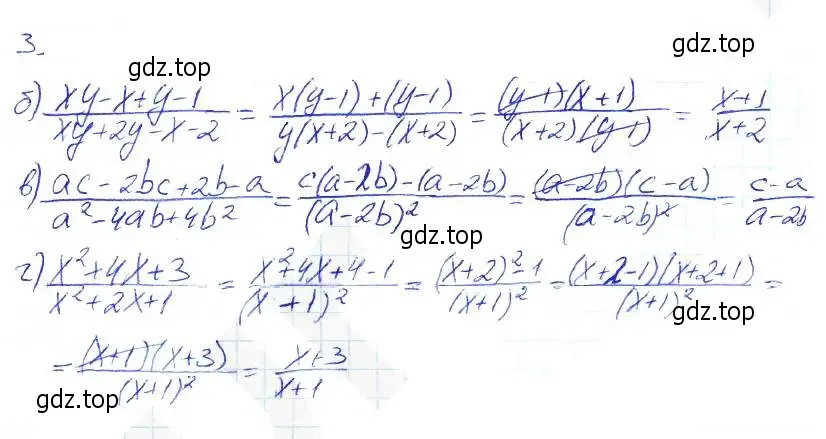 3.
gdz.top
gdz.top
б) (xy-x+y-1)/(xy+2y-x-2) = (x(y-1)+(y-1))/(y(x+2)-(x+2)) = ((y-1)(x+1))/((x+2)(y-1)) = (x+1)/(x+2)
в) (ac-2bc+2b-a)/(a²-4ab+4b²) = (c(a-2b)-(a-2b))/((a-2b)²) = ((a-2b)(c-a))/((a-2b)²) = (c-a)/(a-2b)
gdz.top
г) (x²+4x+3)/(x²+2x+1) = (x²+4x+4-1)/((x+1)²) = ((x+2)²-1)/((x+1)²) = ((x+2-1)(x+2+1))/((x+1)²) =
gdz.top
= ((x+1)(x+3))/((x+1)²) = (x+3)/(x+1)
gdz.top